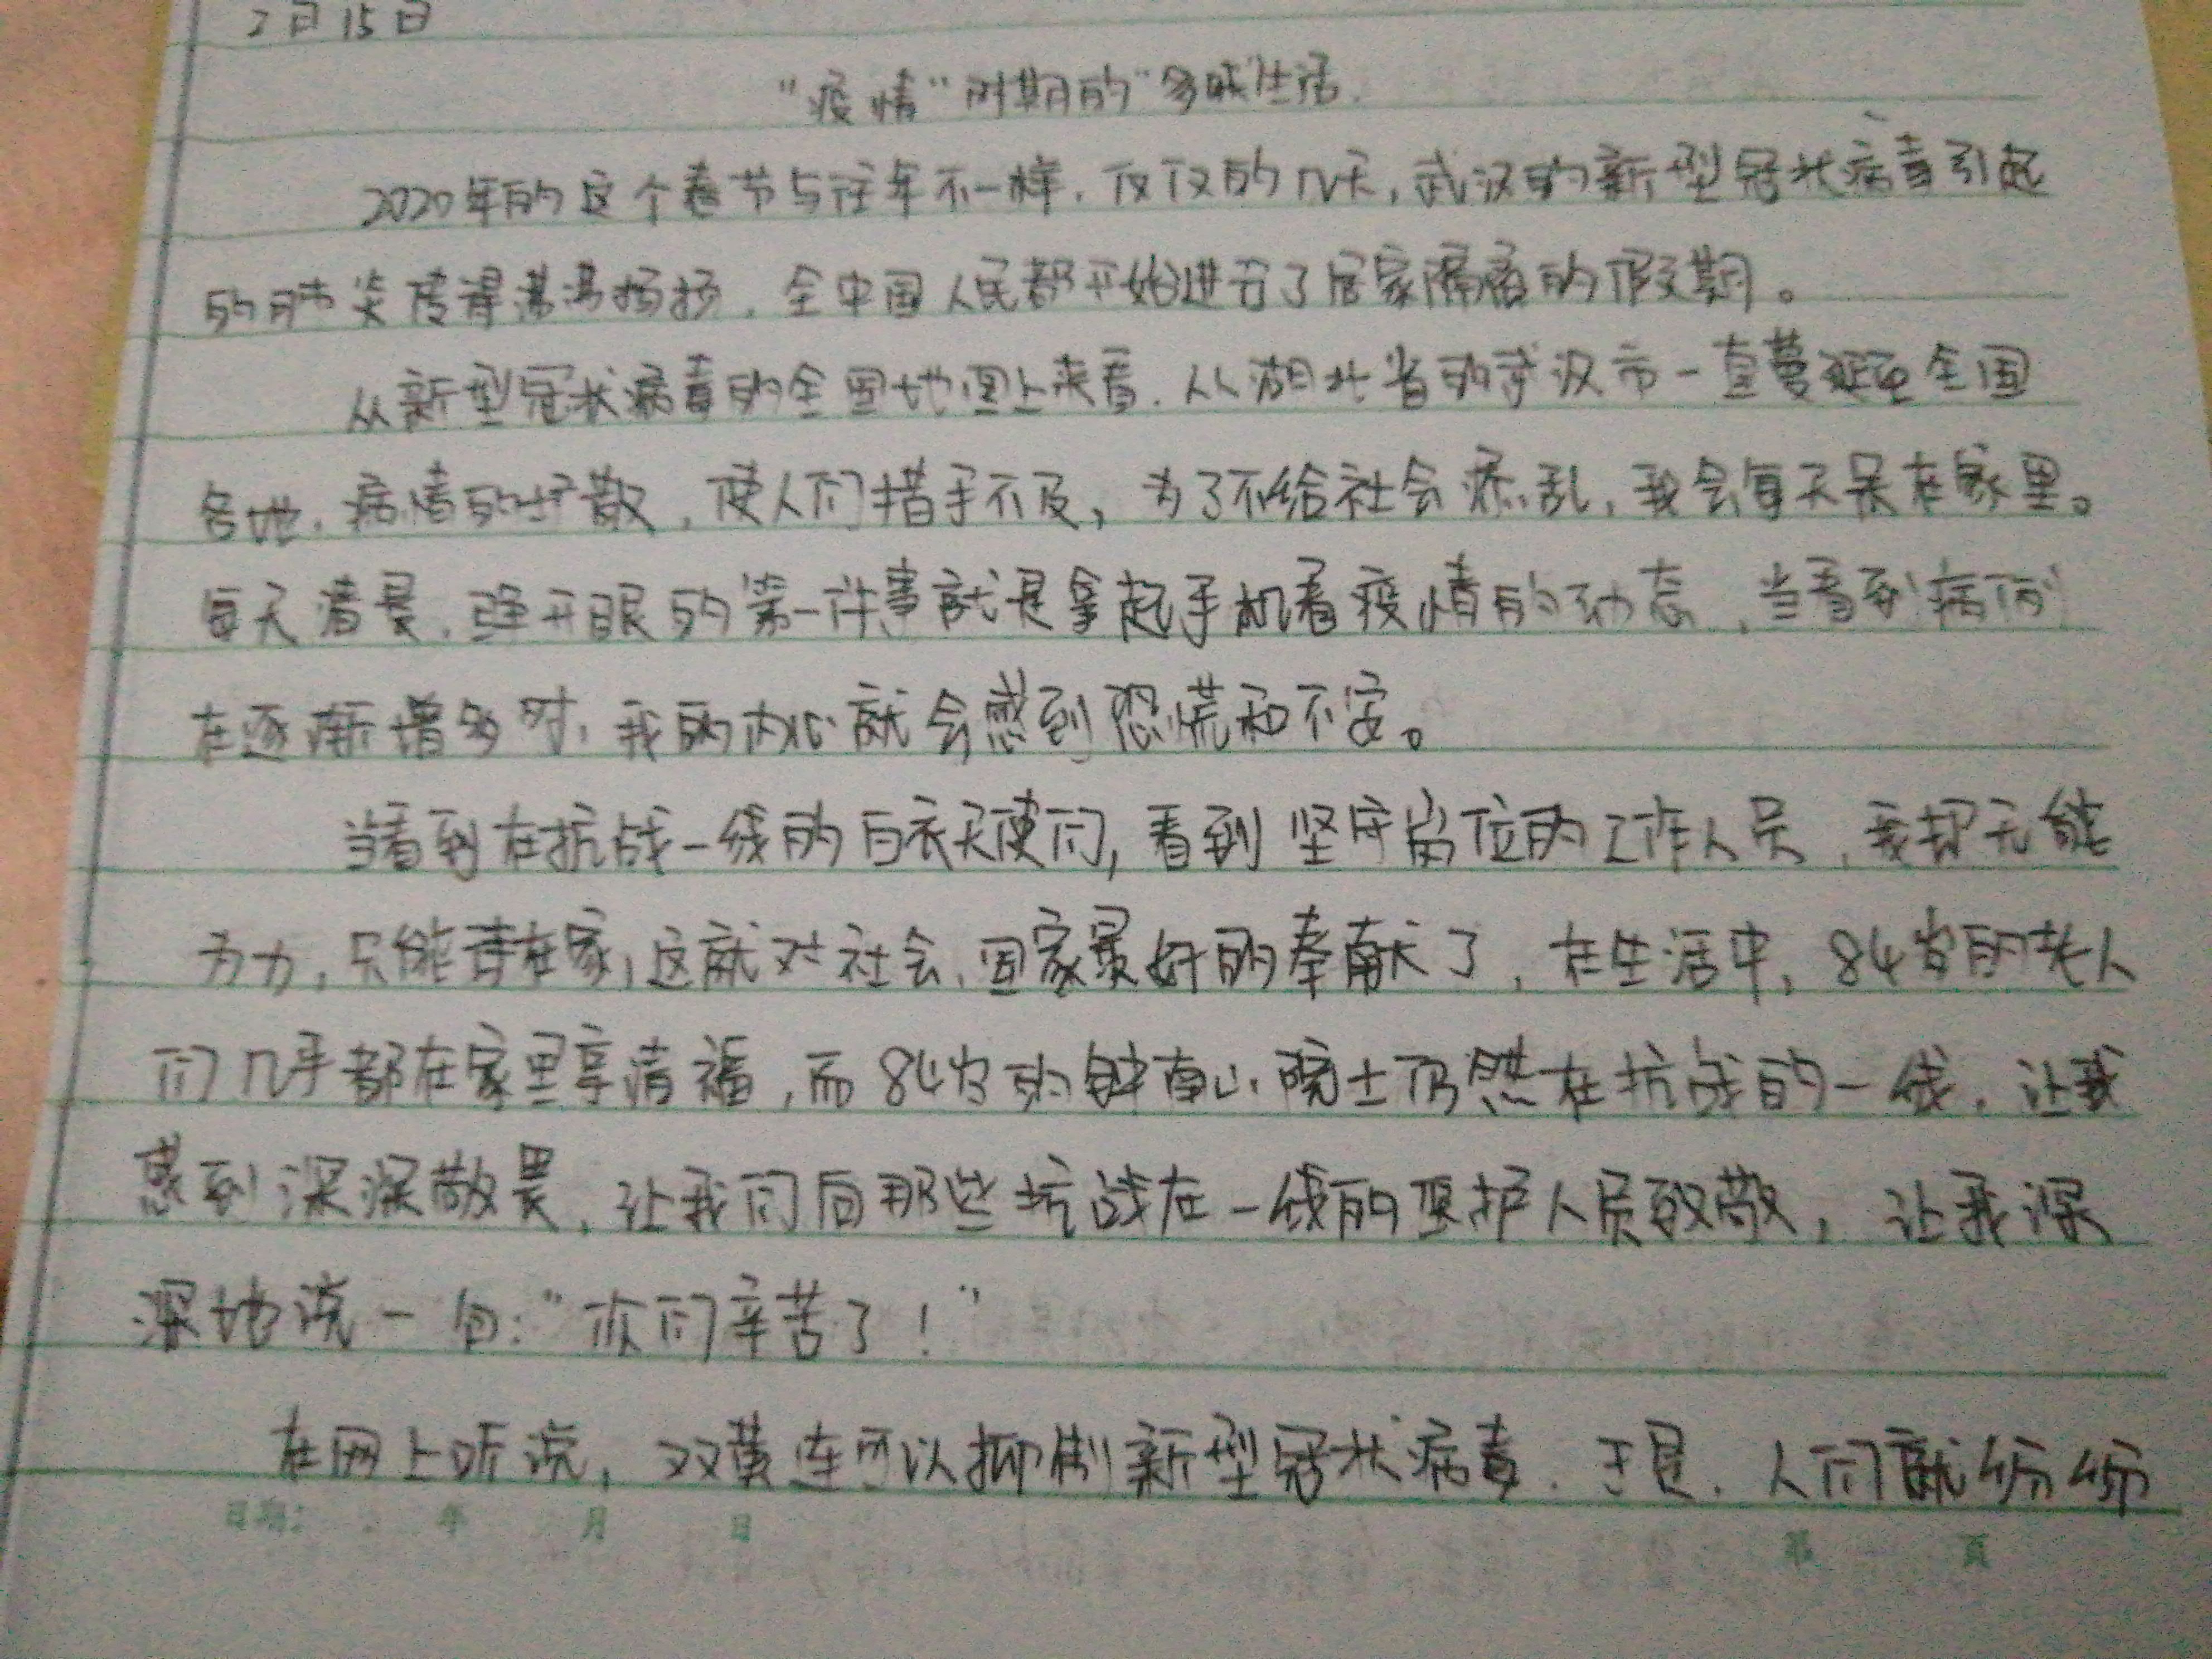 2月15日
"疫情"时期的"多味生活
2020年的这个春节与往年不一样，仅仅的几天，武汉的新型冠状病毒引起
的肺炎传得沸沸扬扬，全中国人民都开始进行了居家隔离的假期。
从新型冠状病毒的全国地图上来看，从湖北省的武汉市一直蔓延至全国
各地，病情的扩散，使人们措手不及，为了不给社会添乱，我会每天呆在家里。
每天清晨，睁开眼的第一件事就是拿起手机看疫情的动态，当看到病例
在逐渐增多时，我的内心就会感到恐慌和不安。
当看到在抗战一线的白衣天使们，看到坚守岗位的工作人员，我却无能
为力，只能待在家，这就对社会、国家最好的奉献了，在生活中，84岁的老人
们几乎都在家里享清福，而84岁的钟南山院士仍然在抗战的一线，让我
感到深深敬畏，让我们向那些抗战在一线的医护人员致敬，让我深
深地说一句："你们辛苦了！"
在网上听说，双黄连可以抑制新型冠状病毒，于是，人们就纷纷
日期： 年 月 日
第 页